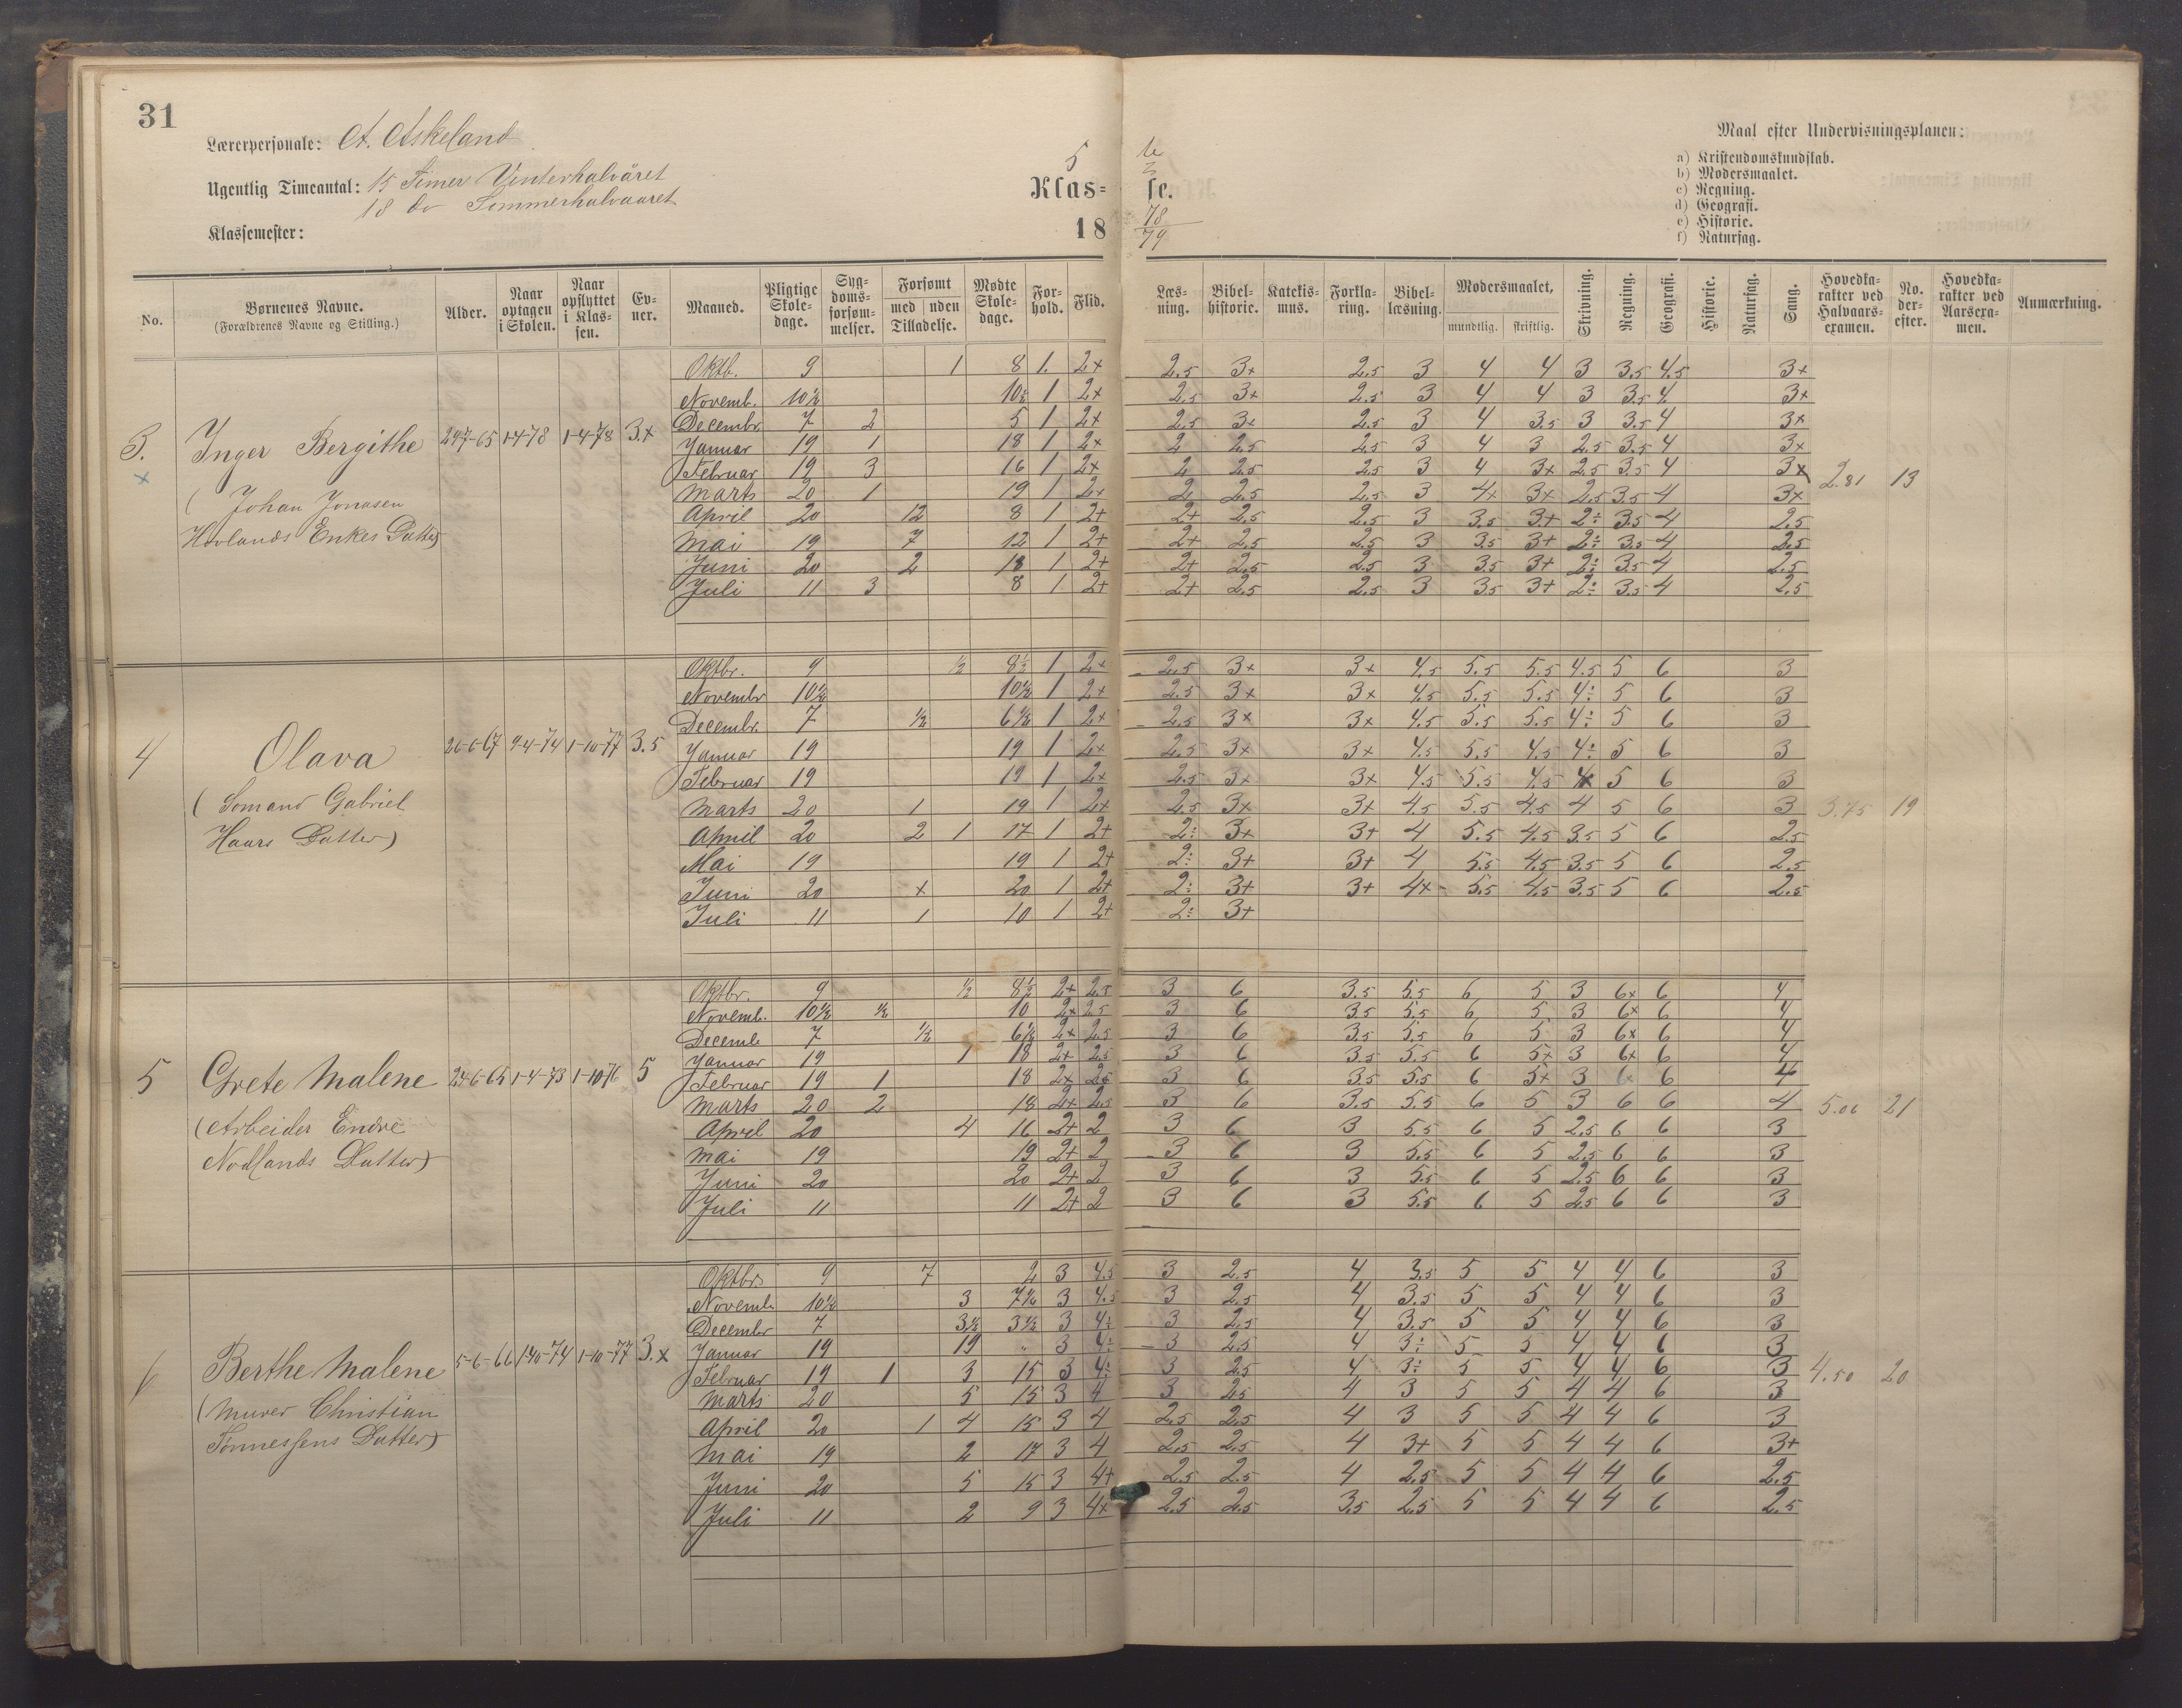 31
Lærerpersonale: A. Askeland
Ugentlig Timeantal: 15 Timer Vinterhalvåret
18 do Sommerhalvaaret
Klassemester:
5 te
Klas= se.
18 78/79
Maal efter Undervisningsplanen:
a) Kristendomskundskab.
b) Modersmaalet.
c) Regning.
d) Geografi.
e) Historie.
f) Naturfag.
No. Børnenes Navne. (Forældrenes Navne og Stilling.) Alder. Naar optagen i Skolen. Naar opflyttet i Klassen. Evner. Maaned. Pligtige Skoledage. Sygdomsforsømmelser. Forsømt med uden Tilladelse. Mødte Skoledage. Forhold. Flid. Læsning. Bibelhistorie. Katekismus. Forklaring. Bibellæsning. Modersmaalet, mundtlig. skriftlig. Skrivning. Regning. Geografi. Historie. Naturfag. Sang. Hovedkarakter ved Halvaarsexamen. No. derefter. Hovedkarakter ved Aarsexamen. Anmærkning.
3. Inger Bergithe 1-4-78 1-4-78 3.x
(Johan Jonasen
Hovlands Enkes Datter)
Oktb. 9 1 8 1. 2x 2.5 3x 2.5 3 4 4 3 3.5 4.5 3x
Novemb. 10½ 10½ 1 2x 2.5 3x 2.5 3 4 4 3 3.5 4. 3x
Decembr. 7 2 5 1 2x 2.5 3x 2.5 3 4 3.5 3 3.5 4 3x
Januar 19 1 18 1 2x 2 2.5 2.5 3 4 3 2.5 3.5 4 3x
Februar 19 3 16 1 2x 2 2.5 2.5 3 4 3x 2.5 3.5 4 3x
Marts 20 1 19 1 2x 2 2.5 2.5 3 4x 3x 2.5 3.5 4 3x
2.81 13
April 20 12 8 1 2+ 2+ 2.5 2.5 3 3.5 3+ 2÷ 3.5 4 2.5
Mai 19 7 12 1 2+ 2+ 2.5 2.5 3 3.5 3+ 2÷ 3.5 4 2.5
Juni 20 2 18 1 2+ 2+ 2.5 2.5 3 3.5 3+ 2÷ 3.5 4 2.5
Juli 11 3 8 1 2+ 2+ 2.5 2.5 3 3.5 3+ 2÷ 3.5 4 2.5
4 Olava 26-6-67 9-4-74 1-10-77 3.5
(Sømand Gabriel
Haars Datter)
Oktbr. 9 ½ 8½ 1 2x 2.5 3x 3x 4.5 5.5 5.5 4.5 5 6 3
Novembr 10½ 10½ 1 2x 2.5 3x 3x 4.5 5.5 5.5 4÷ 5 6 3
Decembr. 7 ½ 6½ 1 2x 2.5 3x 3x 4.5 5.5 5.5 4÷ 5 6 3
Januar 19 19 1 2x 2.5 3x 3x 4.5 5.5 4.5 4÷ 5 6 3
Februar 19 19 1 2x 2.5 3x 3x 4.5 5.5 4.5 4x 5 6 3
Marts 20 1 19 1 2x 2.5 3x 3x 4.5 5.5 4.5 4 5 6 3
3.75 19
April 20 2 1 17 1 2+ 2÷ 3+ 3+ 4 5.5 4.5 3.5 5 6 2.5
Mai 19 19 1 2+ 2÷ 3+ 3+ 4 5.5 4.5 3.5 5 6 2.5
Juni 20 x 20 1 2+ 2÷ 3+ 3+ 4x 5.5 4.5 3.5 5 6 2.5
Juli 11 1 10 1 2+ 2÷ 3+
5 Grete Malene 1-4-73 1-10-76 5
(Arbeider Endre
Nodlands Datter)
Oktbr. 9 ½ 8½ 2+ 2.5 3 6 3.5 5.5 6 5 3 6x 6 4
Novemb. 10½ ½ 10 2x 2.5 3 6 3.5 5.5 6 5 3 6x 6 4
Decemb. 7 ½ 6½ 2x 2.5 3 6 3.5 5.5 6 5 3 6x 6 4
Januar 19 1 18 2x 2.5 3 6 3.5 5.5 6 5x 3 6x 6 4
Februar 19 1 18 2x 2.5 3 6 3.5 5.5 6 5x 3 6x 6 4
Marts 20 2 18 2x 2.5 3 6 3.5 5.5 6 5 3 6 6 4
5.06 21
April 20 4 16 2+ 2 3 6 3 5.5 6 5 2.5 6 6 3
Mai 19 19 2+ 2 3 6 3 5.5 6 5 2.5 6 6 3
Juni 20 20 2+ 2 3 6 3 5.5 6 5 2.5 6 6 3
Juli 11 11 2+ 2 3 6 3 5.5 6 5 2.5 6 6 3
6 Berthe Malene 5-6-66 1-10-74 1-10-77 3.x
(Murer Christian
Tønnessens Datter)
Oktbr. 9 7 2 3 4.5 3 2.5 4 3.5 5 5 4 4 6 3
Novemb. 10½ 3 7½ 3 4.5 3 2.5 4 3.5 5 5 4 4 6 3
Decembr 7 3½ 3½ 3 4÷ 3 2.5 4 3.5 5 5 4 4 6 3
Januar 19 19 " 3 4÷ 3 2.5 4 3÷ 5 5 4 4 6 3
Februar 19 1 3 15 3 4÷ 3 2.5 4 3÷ 5 5 4 4 6 3
4.50 20
Marts 20 5 15 3 4 3 2.5 4 3 5 5 4 4 6 3
April 20 1 4 15 3 4 2.5 2.5 4 3 5 5 4 4 6 3
Mai 19 2 17 3 4 2.5 2.5 4 3+ 5 5 4 4 6 3+
Juni 20 5 15 3 4+ 2.5 2.5 4 2.5 5 5 4 4 6 2.5
Juli 11 2 9 3 4x 2.5 2.5 3.5 2.5 5 5 4 4 6 2.5